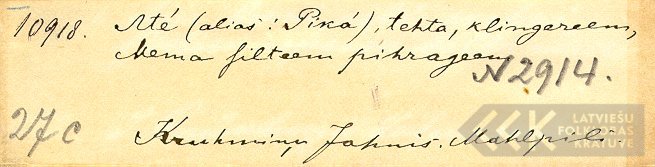 10918. Até (alias: Piká), tehta, klingereem,
Mema silteem pihrageem
N 2914.
27c Kruhmiņu Jahnis. Mahlpili.
LATVIEŠU
FOLKLORAS
KRĀTUVE